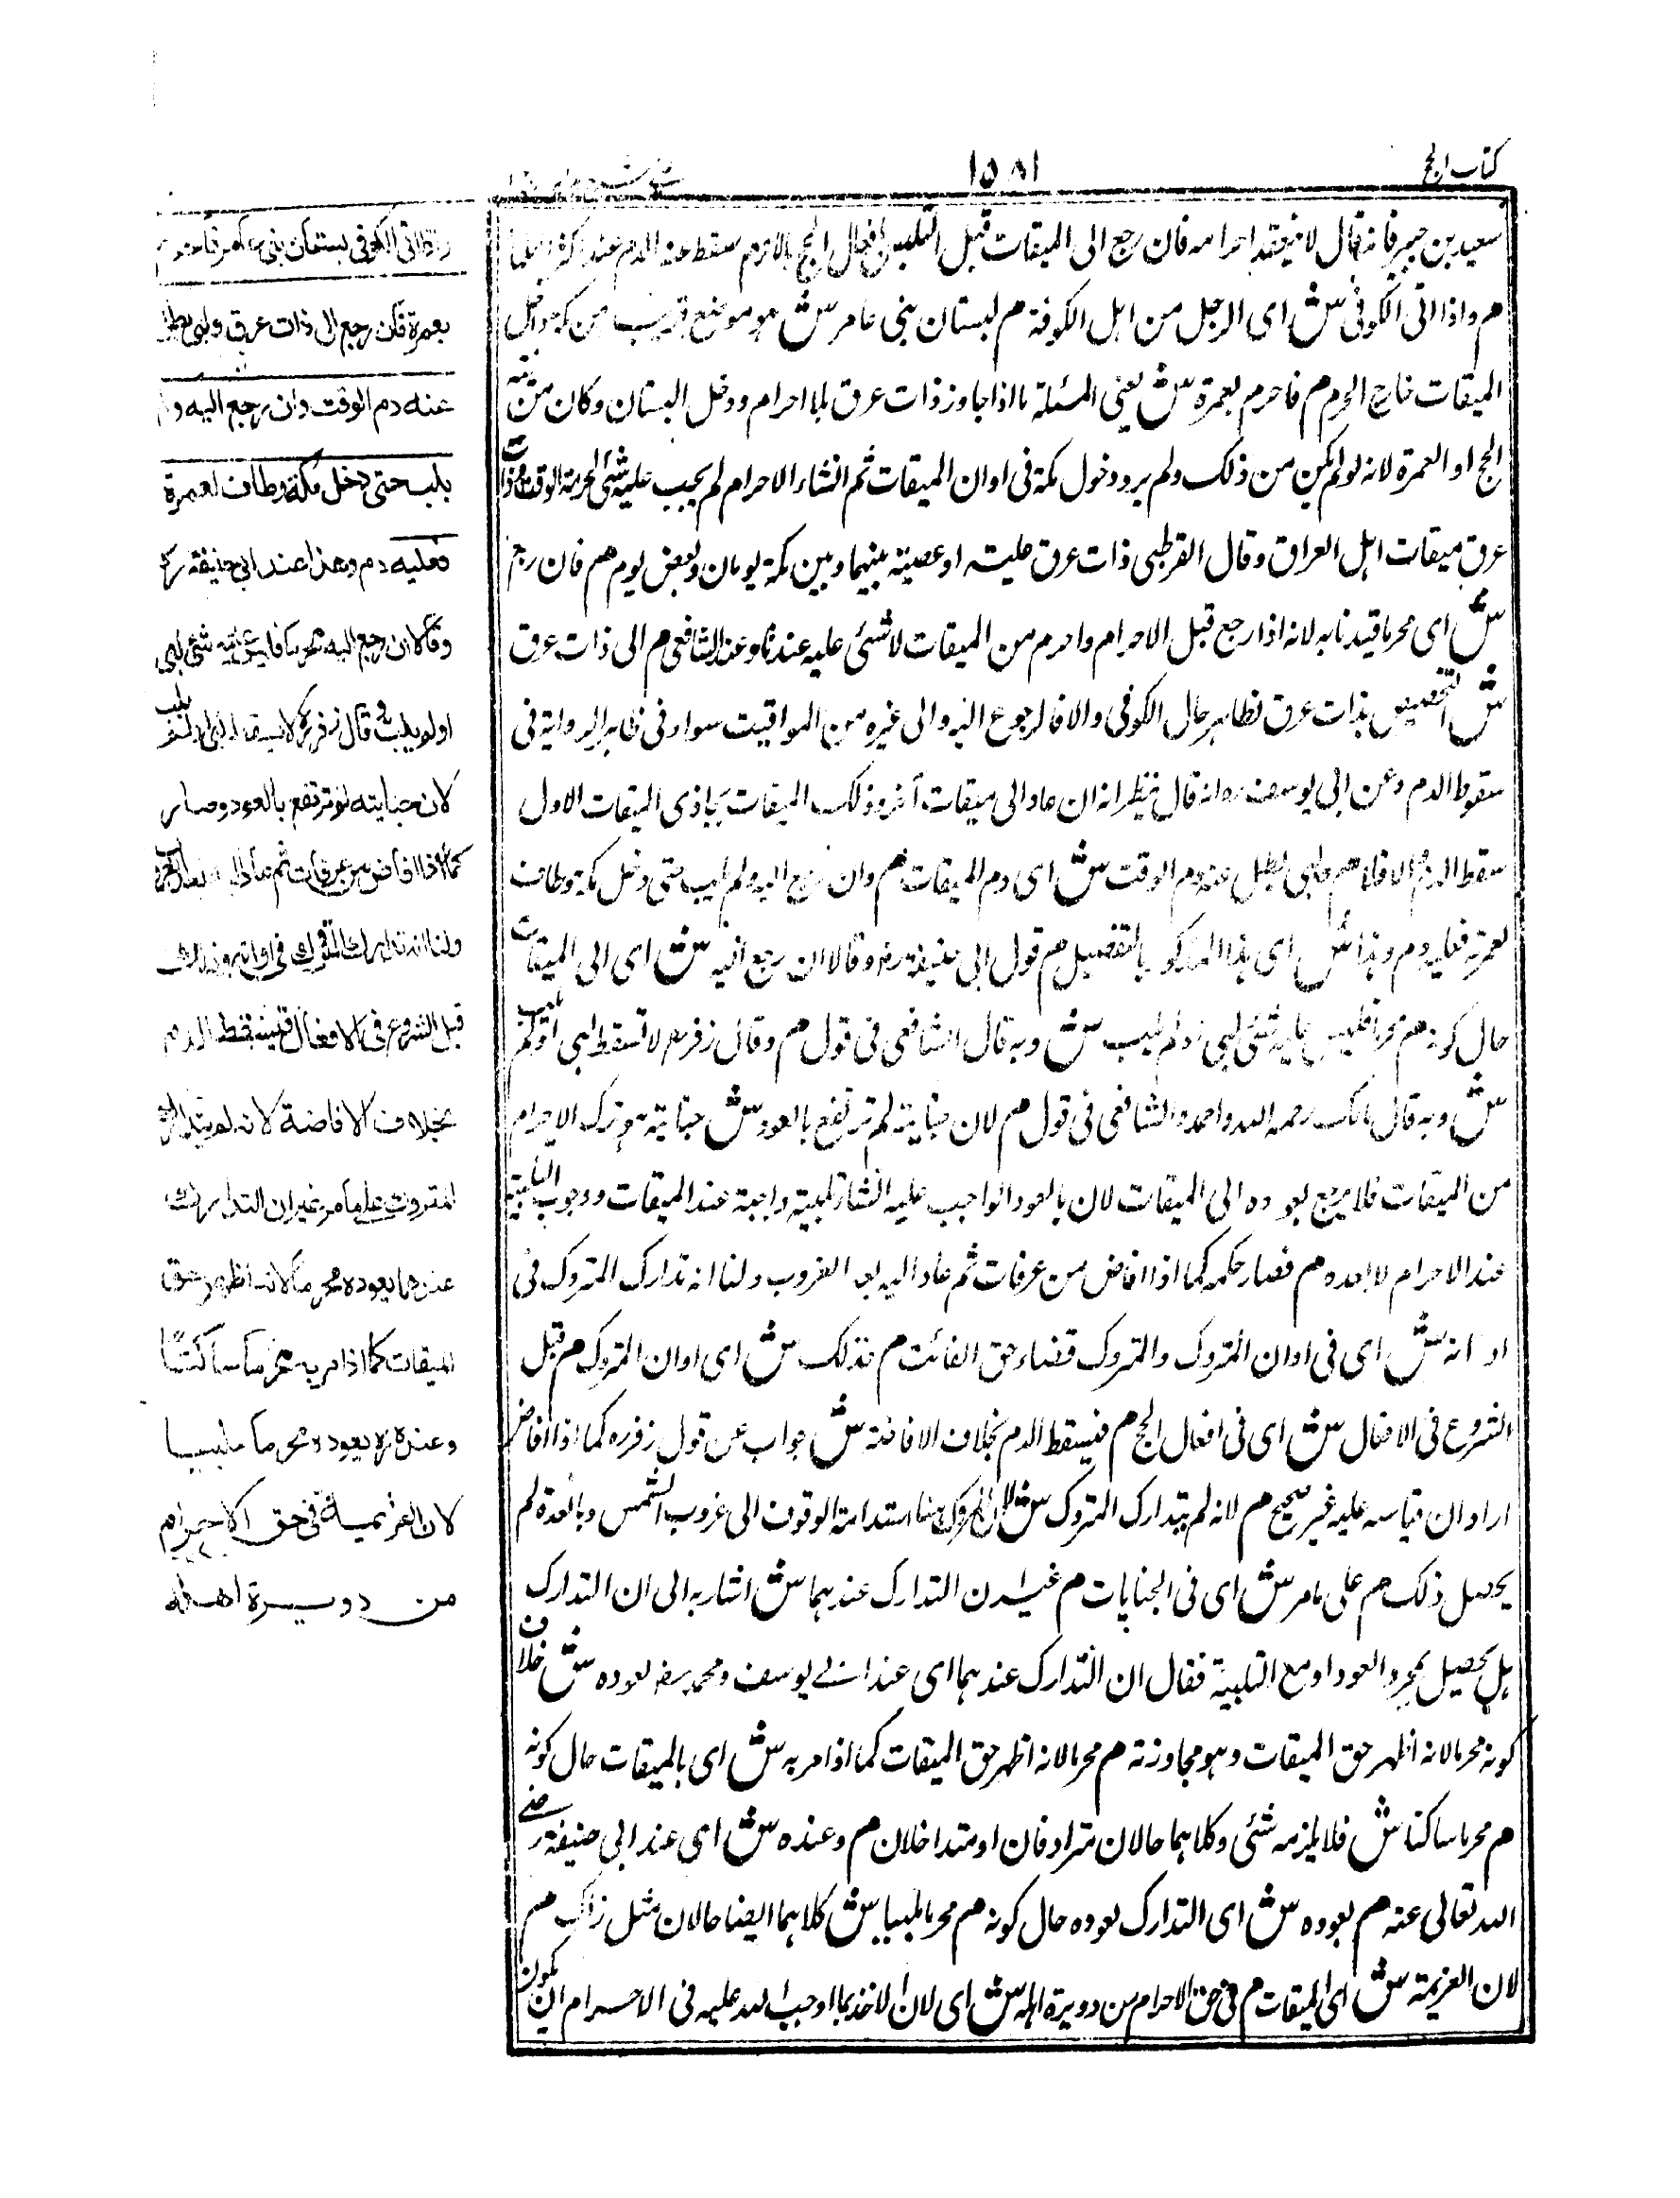 كتاب الحج
١٥٨١
سعيد بن جبير فانه قال لا ينعقد احرامه فان رجع الى الميقات قبل التلبس بافعال الحج بالاحرام سقط عنه الدم عند اكثر
م واذا اتى الكوفى ش اى الرجل من اهل الكوفة م بستان بنى عامر ش هو موضع قريب من مكة داخل
الميقات خارج الحرم م فاحرم بعمرة ش يعنى المسئلة ما اذا جاوز ذات عرق بلا احرام ودخل البستان وكان من نيته
الحج او العمرة لانه لو لم يكن من ذلك ولم يرد دخول مكة فى اوان الميقات ثم انشاء الاحرام لم يجب عليه شئ لحرمة الوقت وذات
عرق ميقات اهل العراق وقال القرطبى ذات عرق بينهما وبين مكة يومان وبعض يوم هم فان رجع
ش اى محرما قيدنا به لانه اذا رجع قبل الاحرام واحرم من الميقات لا شئ عليه عندنا وعند الشافعى م الى ذات عرق
ش التخصيص بذات عرق نظاهر حال الكوفى والا فالرجوع اليه والى غيره من المواقيت سواء فى ظاهر الرواية فى
سقوط الدم وعن ابى يوسف رح انه قال ينظر انه ان عاد الى ميقات آخر وذلك الميقات يحاذى الميقات الاول
سقط الدم والا فلا هم ولبى بطل عنه دم الوقت ش اى دم الميقات هم وان رجع اليه ولم يلب حتى دخل مكة وطاف
لعمرته فعليه دم وهذا ش اى هذا المذكور بالتفصيل هم قول ابى حنيفة رح وقالا ان رجع اليه ش اى الى الميقات
حال كونه هم محرما فليس عليه شئ لبى او لم يلب ش وبه قال الشافعى فى قول هم وقال زفر رح لا تسقط لبى او لم يلب
ش وبه قال مالك رحمه الله واحمد والشافعى فى قول هم لان جنايته لم ترتفع بالعود ش جنايته هو ترك الاحرام
من الميقات فلا يرتفع بعوده الى الميقات لان بالعود الواجب عليه انشاء تلبية واجبة عند الميقات ووجوب التلبية
عند الاحرام لا بعده هم فصار حكمه كما اذا افاض من عرفات ثم عاد اليه بعد الغروب ولنا انه تدارك المتروك فى
اوانه ش اى فى اوان المتروك والمتروك قضاء حق الفائت م وذلك ش اى اوان المتروك م قبل
الشروع فى الافعال ش اى فى افعال الحج هم فيسقط الدم بخلاف الافاضة ش جواب عن قول زفر رح كما اذا افاض
اراد ان قياسه عليه غير صحيح هم لانه لم يتدارك المتروك ش لان المتروك هنا استدامة الوقوف الى غروب الشمس وبالعود لم
يحصل ذلك هم على ما مر ش اى فى الجنايات م غير ان التدارك عندهما ش اشار به الى ان التدارك
هل يحصل بمجرد العود او مع التلبية فقال ان التدارك عندهما اى عند ابى يوسف ومحمد رح بعوده ش خلاف
كونه محرما لانه اظهر حق الميقات وهو مجاوزته م محرما لانه اظهر حق الميقات كما اذا مر به ش اى بالميقات حال كونه
هم محرما ساكتا ش فلا يلزمه شئ وكلاهما حالان مترادفان او متداخلان م وعنده ش اى عند ابى حنيفة رضى
الله تعالى عنه م بعوده ش اى التدارك بعوده حال كونه هم محرما ملبيا ش كلاهما ايضا حالان مثل ذاك هم
لان العزيمة ش اى الميقات م فى حق الاحرام من دويرة اهله ش اى لان الاخذ بما اوجب الله عليه فى الاحرام ان يكون
واذا اتى الكوفى بستان بنى عامر فاحرم
بعمرة فان رجع الى ذات عرق ولبى بطل
عنه دم الوقت وان رجع اليه ولم
يلب حتى دخل مكة وطاف لعمرة
فعليه دم وهذا عند ابى حنيفة رح
وقالا ان رجع اليه محرما فليس عليه شئ لبى
اولم يلب وقال زفر رح لا يسقط لبى اولم يلب
لان جنايته لم ترتفع بالعود وصار
كما اذا افاض من عرفات ثم عاد اليه بعد الغروب
ولنا انه تدارك المتروك فى اوانه وذلك
قبل الشروع فى الافعال فيسقط الدم
بخلاف الافاضة لانه لم يتدارك
المتروك على ما مر غير ان التدارك
عندهما بعوده محرما لانه اظهر حق
الميقات كما اذا مر به محرما ساكتا
وعنده رح بعوده محرما ملبيا
لان العزيمة فى حق الاحرام
من دويرة اهله